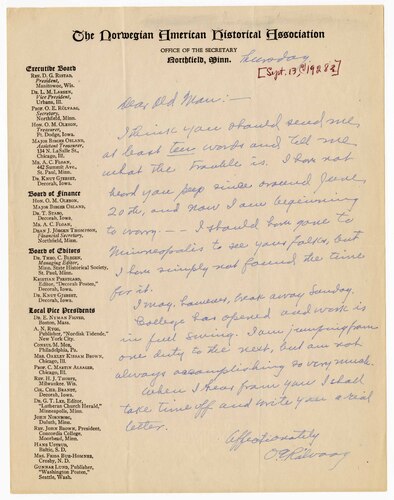 The Norwegian American Historical Association
OFFICE OF THE SECRETARY
Northfield, Minn.
Thursday
[Sept. 13, 1928?]
Executive Board
REV. D. G. RISTAD,
President,
Manitowoc, Wis.
DR. L. M. LARSEN,
Vice President,
Urbana, Ill.
PROF. O. E. RÖLVAAG,
Secretary,
Northfield, Minn.
HON. O. M. OLESON,
Treasurer,
Ft. Dodge, Iowa.
MAJOR BIRGER OSLAND,
Assistant Treasurer,
134 N. LaSalle St.,
Chicago, Ill.
MR. A. C. FLOAN,
442 Summit Ave.,
St. Paul, Minn.
DR. KNUT GJERSET,
Decorah, Iowa.
Board of Finance
HON. O. M. OLESON,
MAJOR BIRGER OSLAND,
DR. T. STABO,
Decorah, Iowa.
MR. A. C. FLOAN,
DEAN J. JÖRGEN THOMPSON,
Financial Secretary,
Northfield, Minn.
Board of Editors
DR. THEO. C. BLEGEN,
Managing Editor,
Minn. State Historical Society,
St. Paul, Minn.
KRISTIAN PRESTGARD,
Editor, "Decorah Posten,"
Decorah, Iowa.
DR. KNUT GJERSET,
Decorah, Iowa.
Local Vice Presidents
Boston, Mass.
A. N. RYGG,
Publisher, "Nordisk Tidende,"
New York City.
CONSUL M. MOE,
Philadelphia, Pa.
MRS. OAKLEY KISSAM BROWN,
Chicago, Ill.
PROF. C. MARTIN ALSAGER,
Chicago, Ill.
REV. H. J. THORPE,
Milwaukee, Wis.
COL. CHR. BRANDT,
Decorah, Iowa.
DR. G. T. LEE, Editor,
"Lutheran Church Herald,"
Minneapolis, Minn.
JOHN NORBERG,
Duluth, Minn.
REV. JOHN BROWN, President,
Concordia College,
Moorhead, Minn.
HANS USTRUD,
Baltic, S. D.
Crosby, N. D.
GUNNAR LUND, Publisher,
"Washington Posten,"
Seattle, Wash.
Dear Old Man:—
I think you should send me
at least ten words and tell me
what the trouble is. I have not
heard you peep since around June
20th, and now I am beginning
to worry — I should have gone to
Minneapolis to see your folks, but
I have simply not found the time
for it.
I may, however, break away Sunday.
College has opened and work is
in full swing. I am jumping from
one duty to the next, but am not
always accomplishing so very much.
When I hear from you I shall
take time off and write you a real
letter.
Affectionately
O. E. Rölvaag